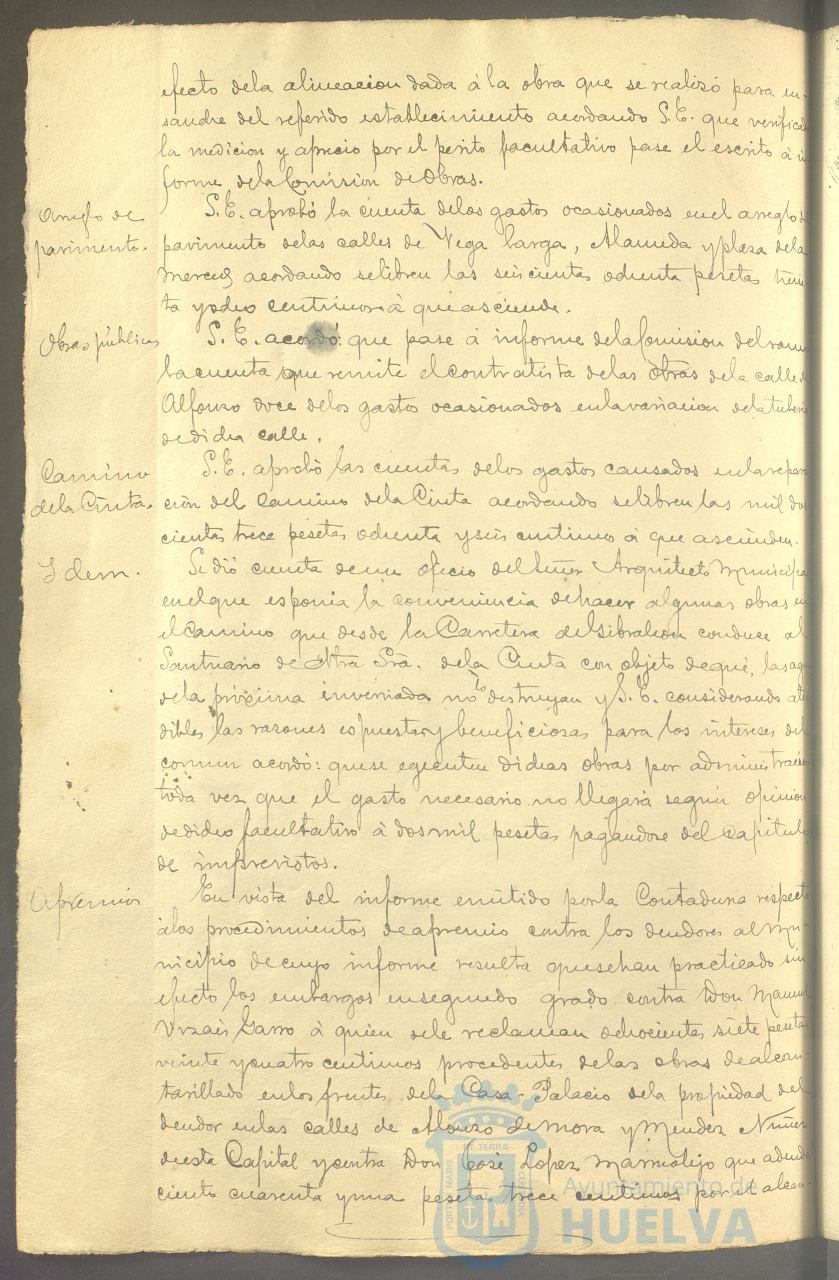 efecto dela alineacion dada á la obra que se realizó para en-
sanche del referido establecimiento acordando S.E. que verificad
la medicion y aprecio por el perito facultativo pase el escrito á in
forme dela Comision de Obras.
Arreglo de
pavimento.
S.E. aprobó la cuenta delos gastos ocasionados en el arreglo de
pavimento delas calles de Vega larga, Alameda y plaza dela
Merced acordando se libren las seiscientas ochenta pesetas trein
ta y ocho centimos á que asciende.
Obras públicas
S.E. acordó: que pase á informe dela Comision del ramo
la cuenta que remite el contratista delas obras dela calle de
Alfonso doce delos gastos ocasionados enla variacion dela tuberi
de dicha calle.
Camino
dela Cinta.
S.E. aprobó las cuentas delos gastos causados enla repara
ción del camino dela Cinta acordando se libren las mil dos
cientas trece pesetas ochenta y seis centimo á que ascienden.
Idem.
Se dió cuenta de un oficio del Señor Arquitecto Municipa
enel que esponia la conveniencia de hacer algunas obras en
el camino que desde la Carretera de Gibraleon conduce al
Santuario de Ntra Srã. dela Cinta con objeto de que, las agu
dela próxima invernada no lo destruyan y S.E. considerando aten
dibles las razones espuestas y beneficiosas para los intereses del
comun acordó: que se egecuten dichas obras por administracion
toda vez que el gasto necesario no llegará segun opinion
de dicho facultativo á dos mil pesetas pagandose del Capitulo
de imprevistos.
Apremios
En vista del informe emitido por la Contaduria respecto
álos procedimientos de apremio contra los deudores al Mu-
nicipio de cuyo informe resulta que se han practicado sin
efecto los embargos en segundo grado contra Don Manuel
Urzaiz Garro á quien se le reclaman ochocientas siete pesetas
veinte y cuatro centimos procedentes delas obras de alcan-
tarillado enlos frentes dela Casa-Palacio dela propiedad del
deudor enlas calles de Alonso de Mora y Mendez Nuñez
de esta Capital y contra Don José Lopez Marmolejo que adeuda
ciento cuarenta y una pesetas trece centimos por el alcan-
PORTUS MARIS ET TERRAE CUSTODIA
Ayuntamiento de
HUELVA